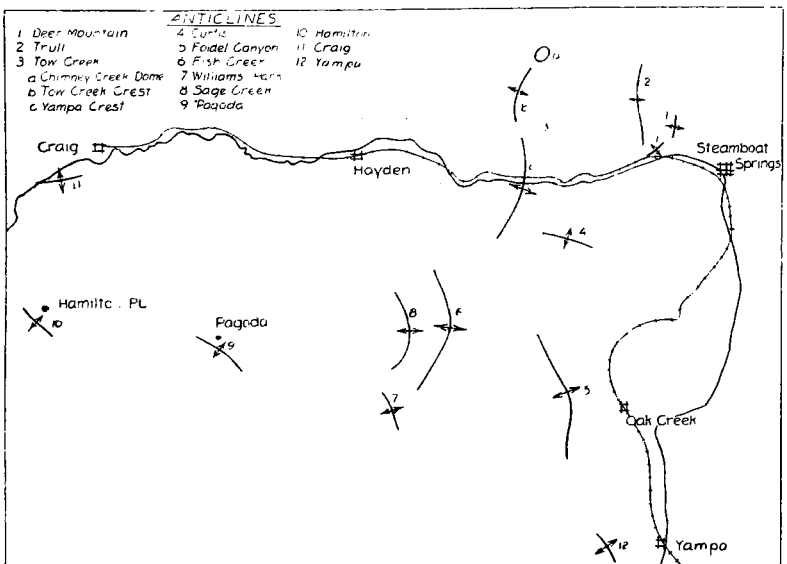 ANTICLINES
1 Deer Mountain
2 Trull
3 Tow Creek
a Chimney Creek Dome
b Tow Creek Crest
c Yampa Crest
4 Curtis
5 Foidel Canyon
6 Fish Creek
7 Williams Park
8 Sage Creek
9 Pagoda
10 Hamilton
11 Craig
12 Yampa
a
2
b
3
1
Steamboat
Springs
Craig
Hayden
c
11
4
Hamilto . PL
10
Pagoda
9
8
6
7
5
Oak Creek
12
Yampa